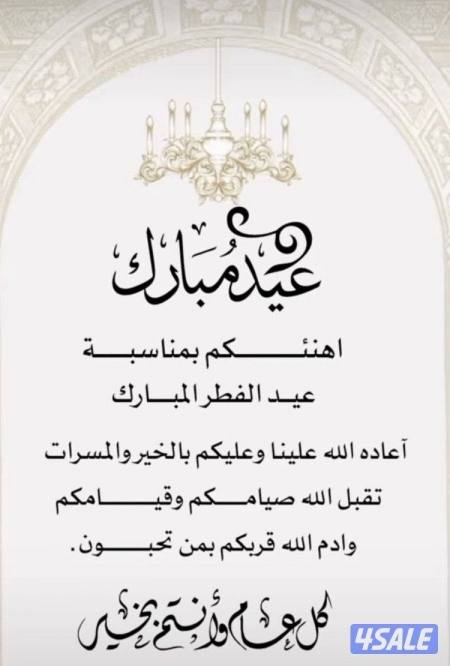 عيد مبارك
اهنئكم بمناسبة
عيد الفطر المبارك
آعاده الله علينا وعليكم بالخير والمسرات
تقبل الله صيامكم وقيامكم
وادم الله قربكم بمن تحبون.
كل عام وأنتم بخير
4SALE